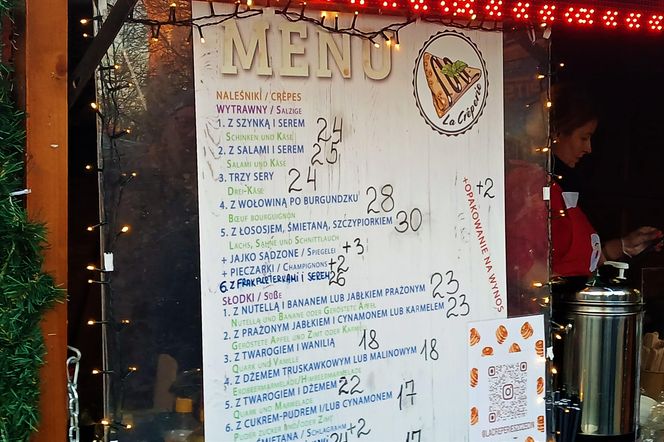 MENU
La Crêperie
NALEŚNIKI / CRÊPES
WYTRAWNY / SALZIGE
1. Z SZYNKĄ I SEREM 24
SCHINKEN UND KÄSE
2. Z SALAMI I SEREM 25
SALAMI UND KÄSE
3. TRZY SERY 24
DREI-KÄSE
4. Z WOŁOWINĄ PO BURGUNDZKU 28
BŒUF BOURGUIGNON
5. Z ŁOSOSIEM, ŚMIETANĄ, SZCZYPIORKIEM 30
LACHS, SAHNE UND SCHNITTLAUCH
+ JAJKO SADZONE / SPIEGELEI +3
+ PIECZARKI / CHAMPIGNONS +2
6. Z FRANKFUTERKAMI I SEREM 26
SŁODKI / SÜßE
1. Z NUTELLĄ I BANANEM LUB JABŁKIEM PRAŻONYM 23
NUTELLA UND BANANE ODER GERÖSTETE APFEL
2. Z PRAŻONYM JABŁKIEM I CYNAMONEM LUB KARMELEM 23
GERÖSTETE APFEL UND ZIMT ODER KARMEL
3. Z TWAROGIEM I WANILIĄ 18
QUARK UND VANILLE
4. Z DŻEMEM TRUSKAWKOWYM LUB MALINOWYM 18
ERDBEERMARMELADE/HIMBEERMARMELADE
5. Z TWAROGIEM I DŻEMEM 22
QUARK UND MARMELADE
6. Z CUKREM-PUDREM I/LUB CYNAMONEM 17
PUDER ZUCKER UND/ODER ZIMT
ŚMIETANA / SCHLAGRAHM +2
24 17
+OPAKOWANIE NA WYNOS +2
@LACREPERIESZCZECIN